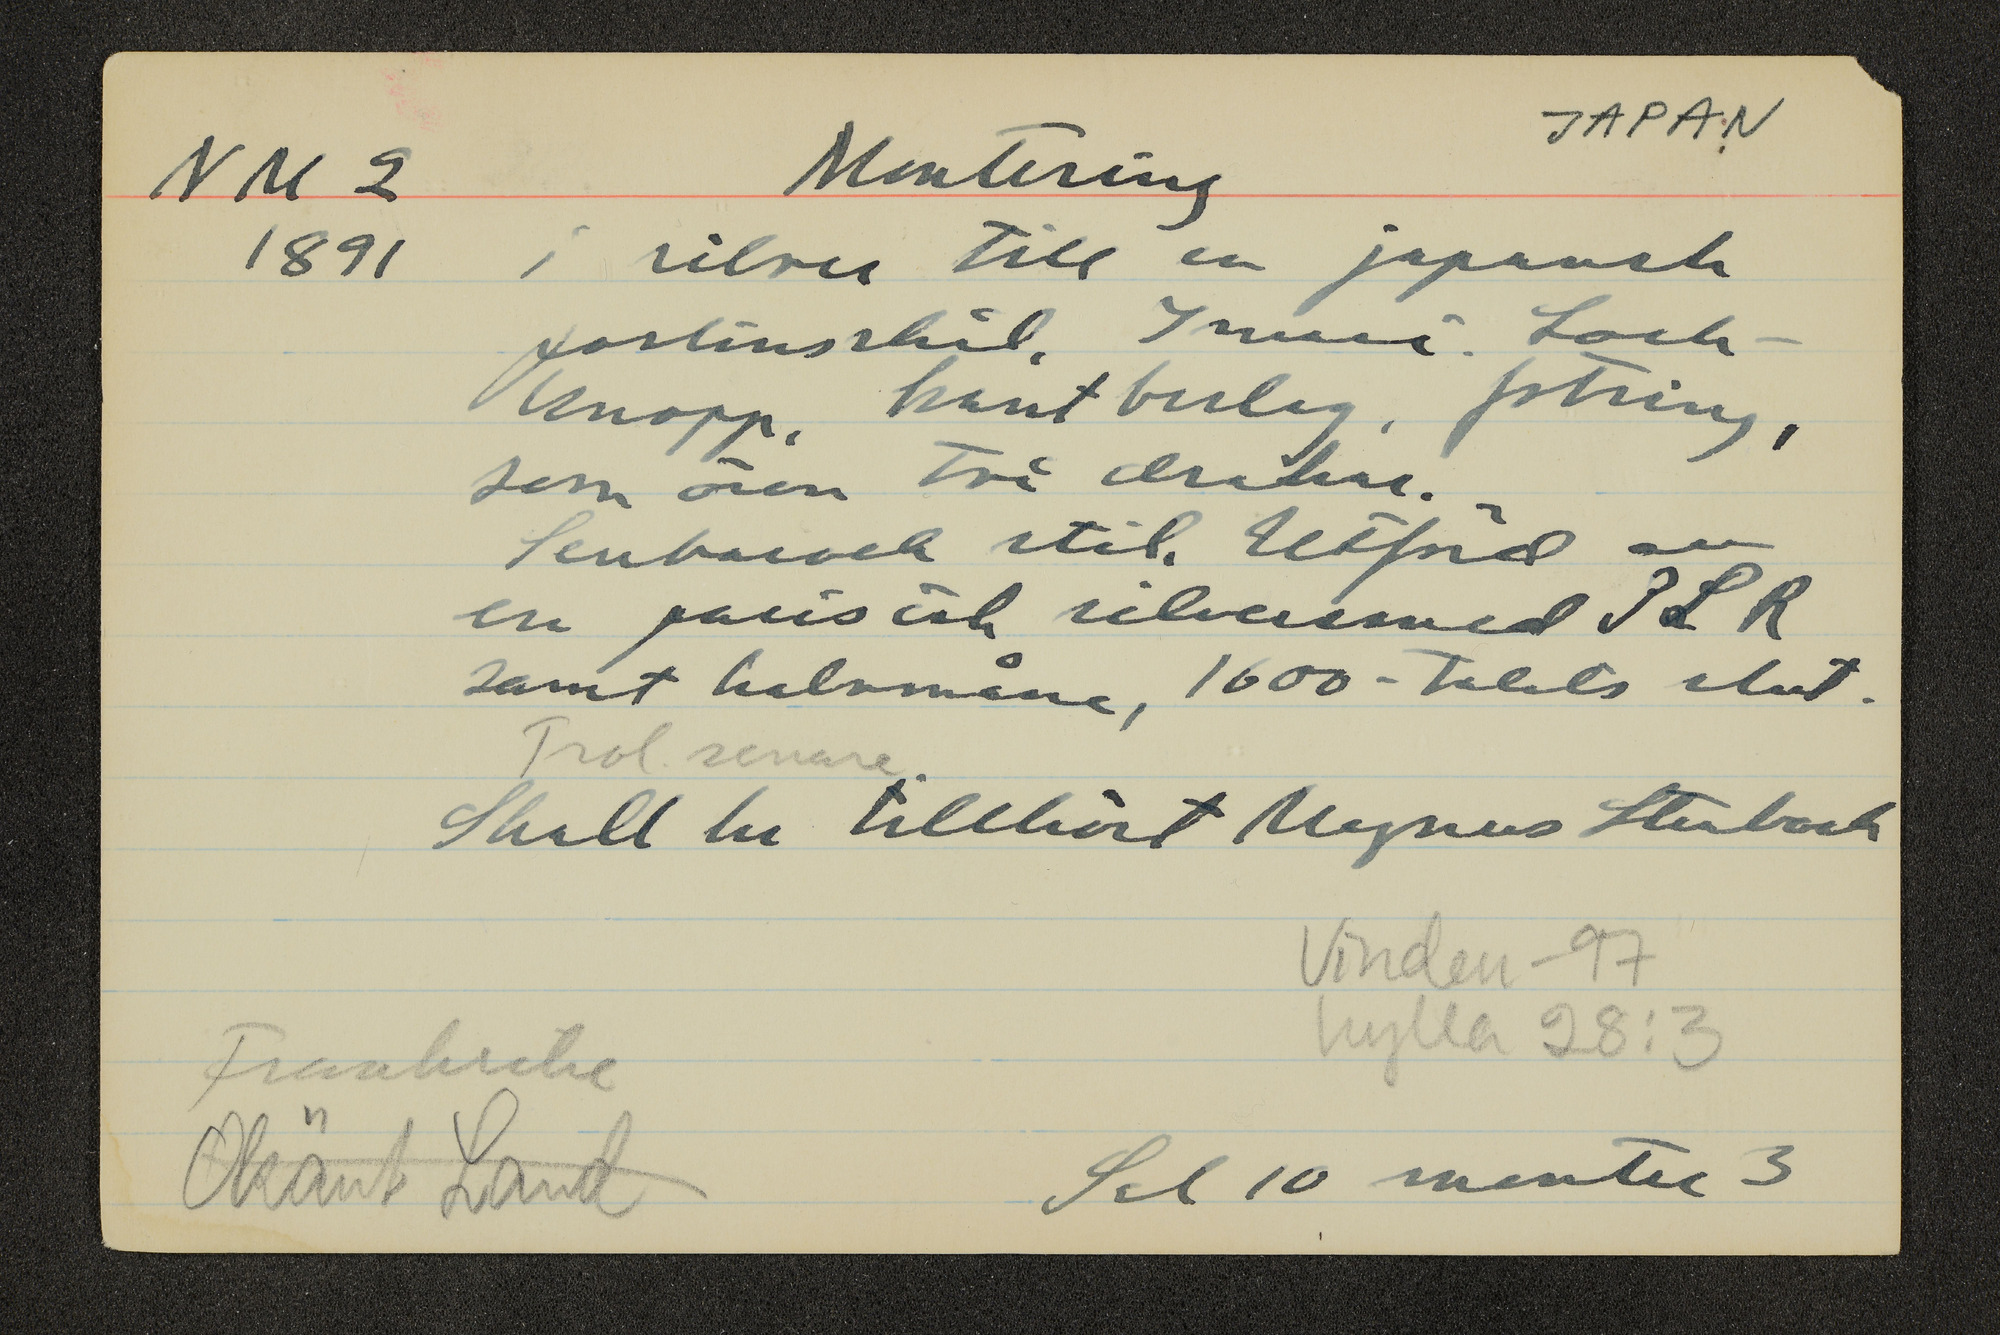 JAPAN
NM 2 Montering
1891 i silver till en japansk
porslinsskål. Imari. Lock-
knopp, kantbeslag, fotring,
som även två drakar.
Senbarock stil. Utförd av
en parisisk silversmed ILR
samt halvmåne, 1600-talets slut.
Trol. senare.
Skall ha tillhört Magnus Stenbock
Vinden -97
hylla 28:3
Frankrike
Okänt Land
Sal 10 monter 3